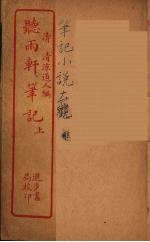 清 清凉道人編
聽雨軒筆記 上
進步書局校印
筆記小說大觀